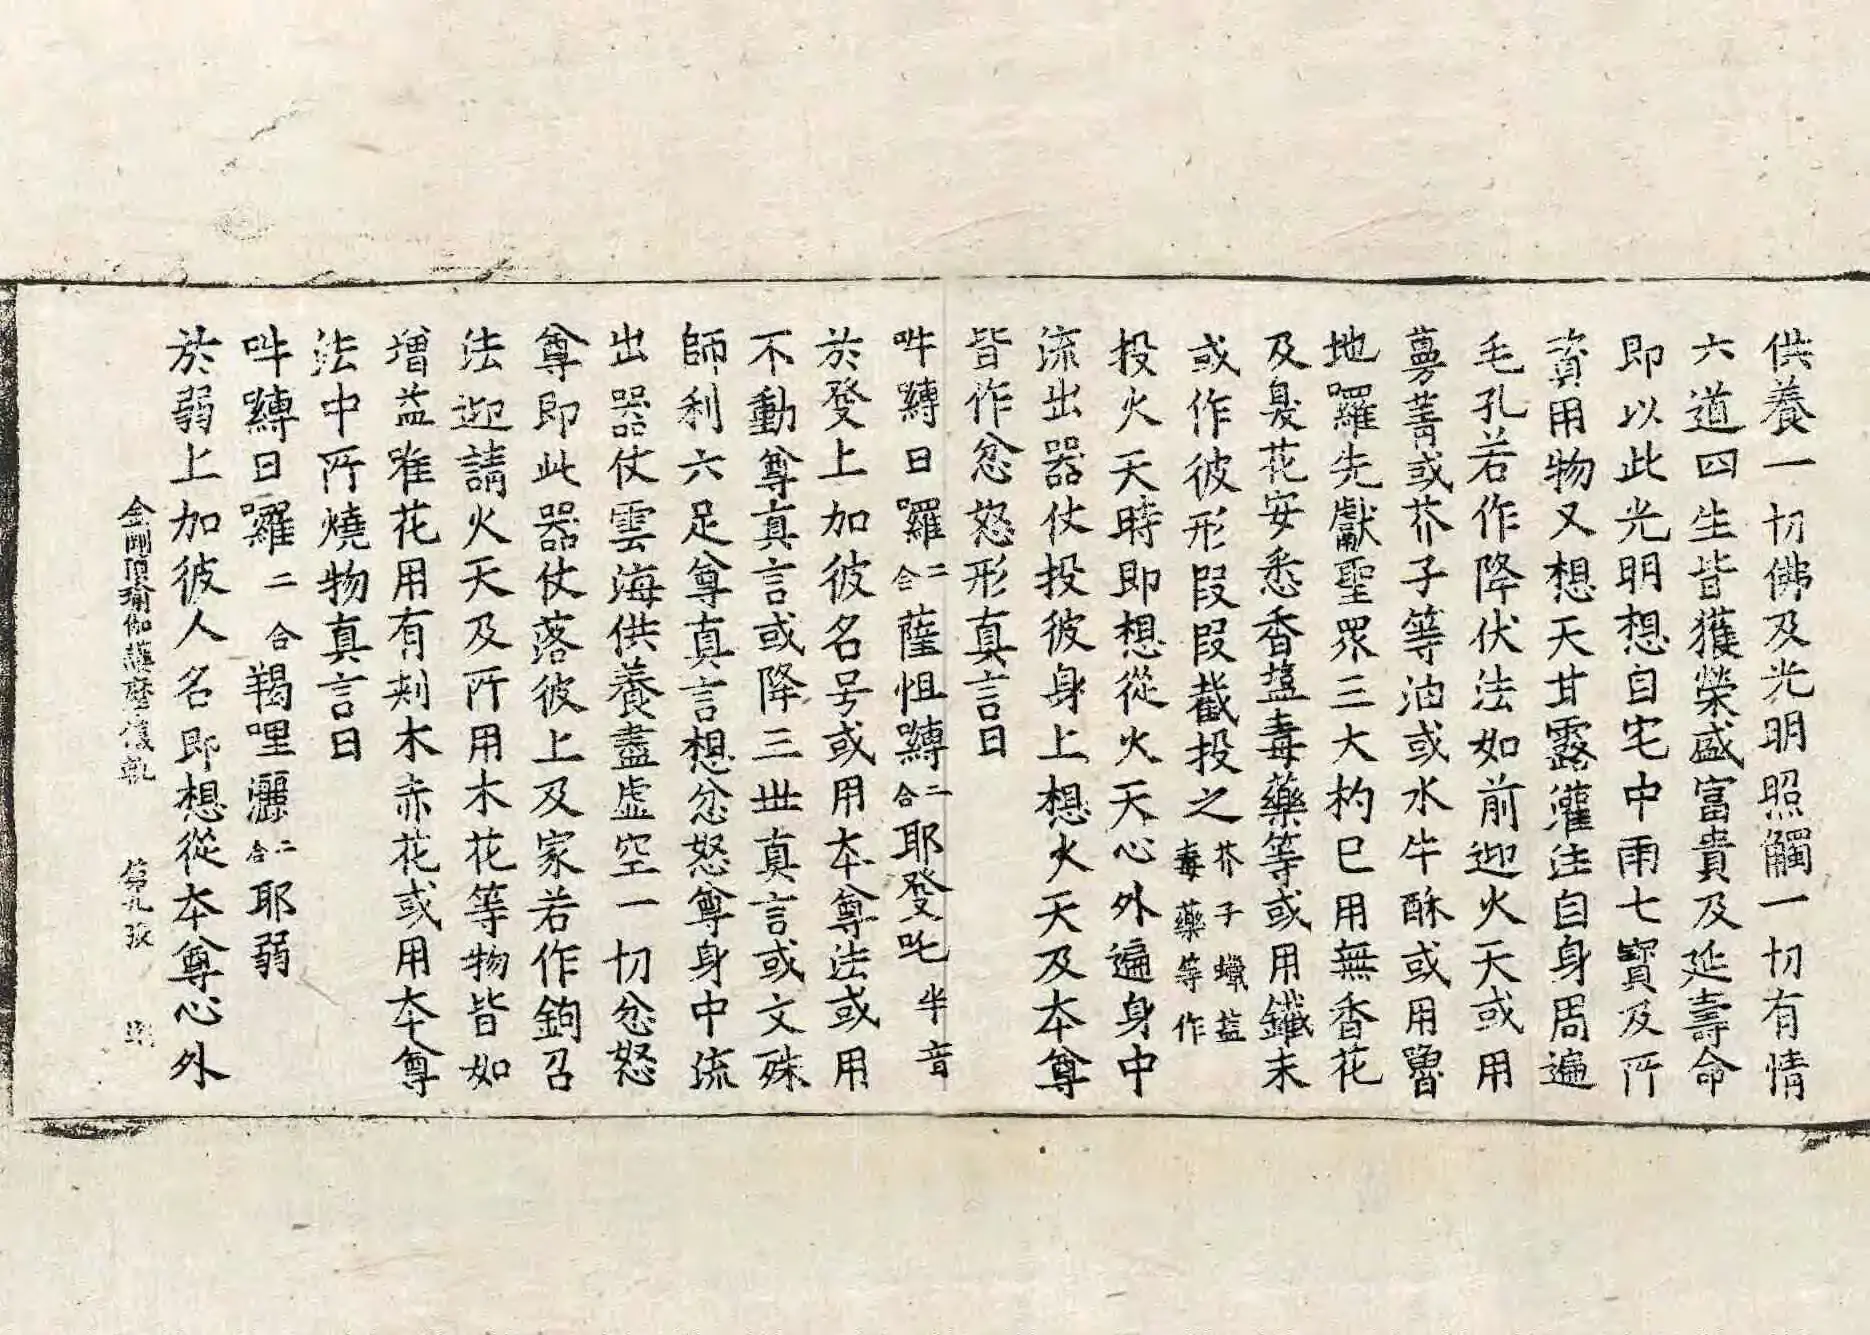 供養一切佛及光明照觸一切有情
六道四生皆獲榮盛富貴及延壽命
即以此光明想自宅中雨七寶及所
資用物又想天甘露灌注自身周遍
毛孔若作降伏法如前迎火天或用
蔓菁或芥子等油或水牛酥或用魯
地囉先獻聖眾三大杓已用無香花
及臭花安悉香盐毒藥等或用鐵末
或作彼形段段截投之芥子蠟盐毒藥等作
投火天時即想從火天心外遍身中
流出器仗投彼身上想火天及本尊
皆作忿怒形真言曰
吽嚩日囉二合薩怛嚩二合耶發吒半音
於發上加彼名号或用本尊法或用
不動尊真言或降三世真言或文殊
師利六足尊真言想忿怒尊身中流
出器仗雲海供養盡虛空一切忿怒
尊即此器仗落彼上及家若作鉤召
法迎請火天及所用木花等物皆如
增益唯花用有刾木赤花或用本尊
法中所燒物真言曰
吽嚩日囉二合羯哩灑二合耶弱
於弱上加彼人名即想從本尊心外
金剛頂瑜伽護摩儀軌 第九張